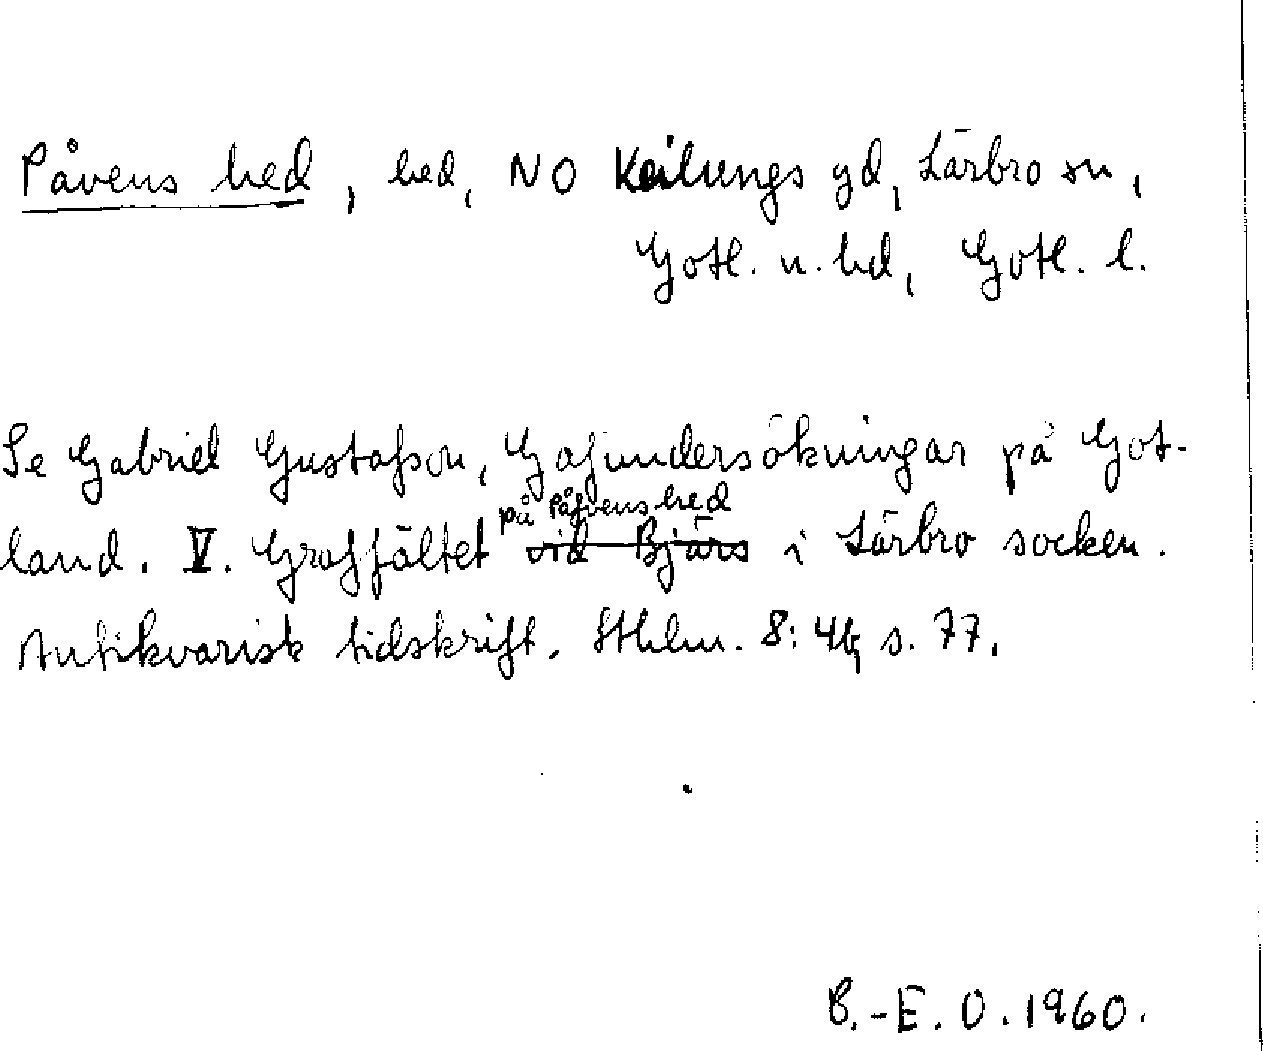 Påvens hed, hed, NO Kailungs gd, Lärbro sn,
Gotl. n. hd, Gotl. l.
Se Gabriel Gustafson, Grafundersökningar på Got-
på Påfvens hed
land. V. Graffältet vid Bjärs i Lärbro socken.
Antikvarisk tidskrift. Sthlm. 8:4, s. 77.
B.-E. O. 1960.